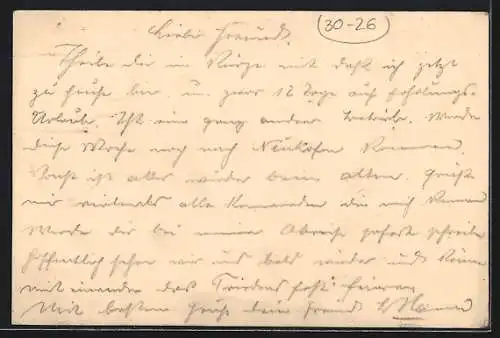 Lieber Freund. 30-26
Theile dir in Kürze mit daß ich jetzt
zu Hause bin u. zwar 12 Tage auf Erholungs-
Urlaub. Ist ein ganz anderer Betrieb. Werde
diese Woche noch nach Neuhofen kommen.
Sonst ist alles wieder beim alten. Grüße
mir vielmals alle Kameraden die mich kennen
Werde dir bei meiner Abreise sofort schreiben
Hoffentlich sehen wir uns bald wieder und können
mit einander das Friedensfest feiern.
Mit besten Gruß dein Freund